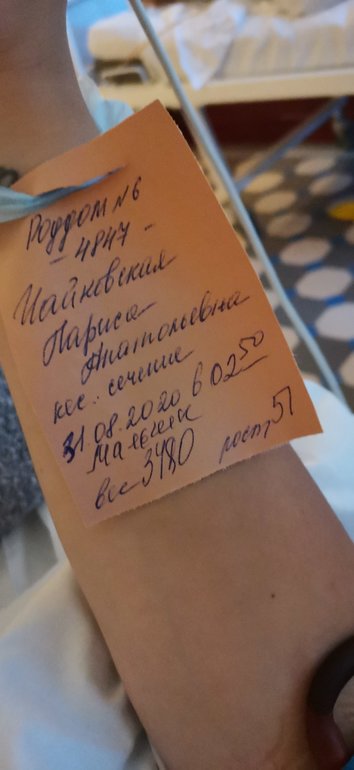 Роддом №6
- 4847 -
Чайковская
Лариса
Анатольевна
кес. сечение
31.08.2020 в 02 50
Мальчик
вес 3480 рост 51